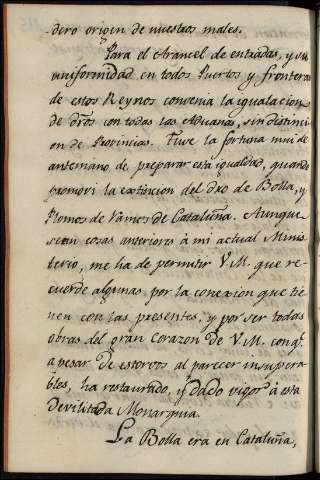 dero origen de nuestros males.
Para el Arancel de entradas, y su
uniformidad en todos Puertos y fronteras
de estos Reynos convenia la igualacion
de dros con todas las Aduanas, sin distinci-
on de Provincias. Tuve la fortuna mui de
antemano de preparar esta igualdad, quando
promoví la extincion del dro de Bolla, y
Plomos de Ramos de Cataluña. Aunque
sean cosas anteriores á mi actual Minis-
terio, me ha de permitir V.M. que re-
cuerde algunas por la conexion que tie-
nen con las presentes, y por ser todas
obras del gran Corazon de V.M. conq.e
a pesar de estorvos al parecer insupera-
bles, ha restaurado, y dado vigor á esta
Devilitada Monarquia.
La Bolla era en Cataluña,